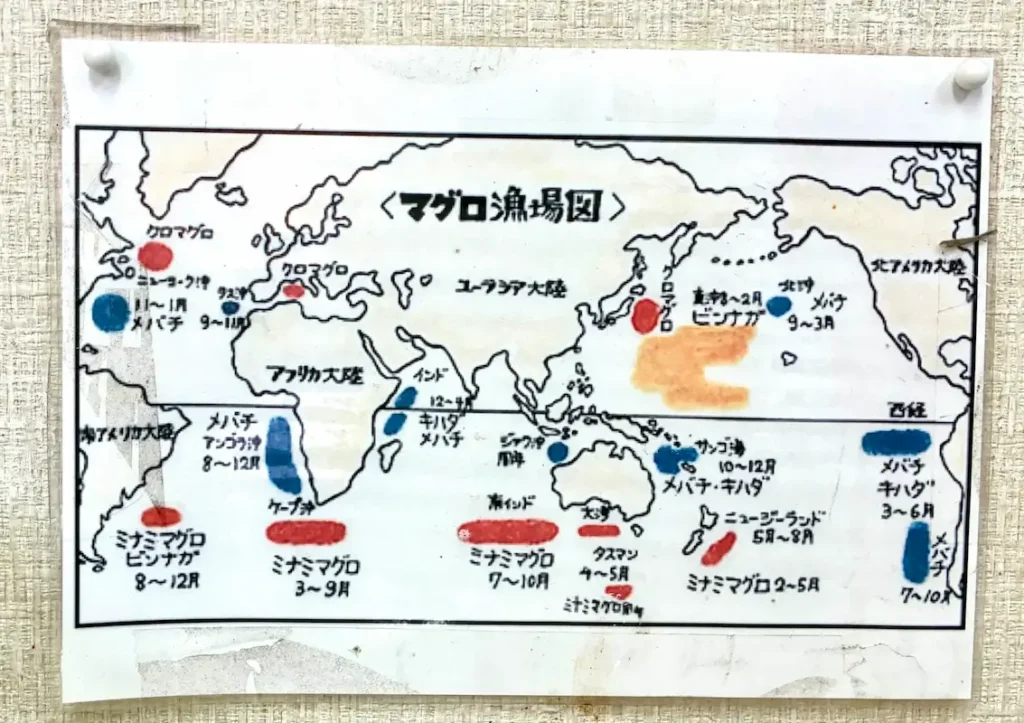 〈マグロ漁場図〉
クロマグロ
ニューヨーク沖
11～1月
メバチ
9～11月
クロマグロ
ユーラシア大陸
クロマグロ
東沖8～2月
ビンナガ
北沖
メバチ
9～3月
北アメリカ大陸
アフリカ大陸
インド
12～4月
キハダ
メバチ
西経
南アメリカ大陸
メバチ
アンゴラ沖
8～12月
ジャワ沖
周年
サンゴ海
10～12月
メバチ・キハダ
メバチ
キハダ
3～6月
ケープ沖
ミナミマグロ
3～9月
南インド
ミナミマグロ
7～10月
ミナミマグロ
ビンナガ
8～12月
タスマン
4～5月
ミナミマグロ
ニュージーランド
5月～8月
ミナミマグロ2～5月
メバチ
7～10月